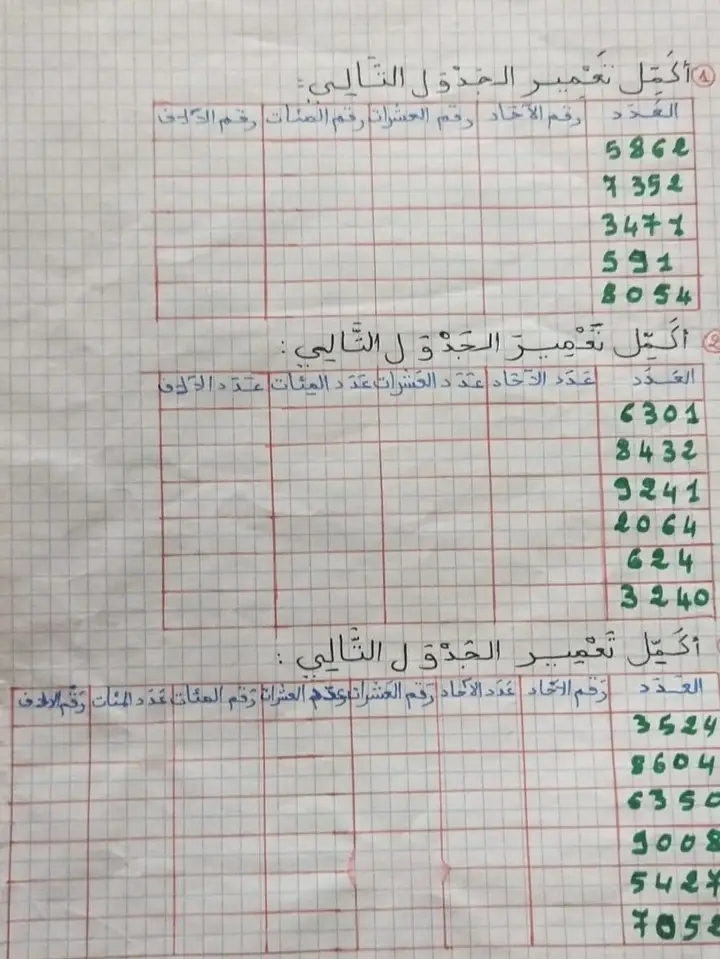 ① أكَمِّل تَعْمِيـر الـجَدْوَل التَّـالِـي:
العَـدَد رقم الآحَاد رقم العشرات رقم المئات رقم الآلاف
5862
7352
3471
591
8054
② أكَمِّل تَعْمِيـرَ الـجَدْوَل التَّـالِـي:
العَـدَد عَدَد الآحَاد عَدَد العَشرات عَدَد المِئات عَدَد الآلاف
6301
8432
9241
2064
624
3240
أكَمِّل تَعْمِيـر الـجَدْوَل التَّـالِـي:
العَـدَد رَقم الآحَاد عَدَد الآحَاد رَقم العشرات عدد العشرات رَقم المئات عَدَد المئات رَقم الآلاف
3524
8604
6350
9008
5427
705